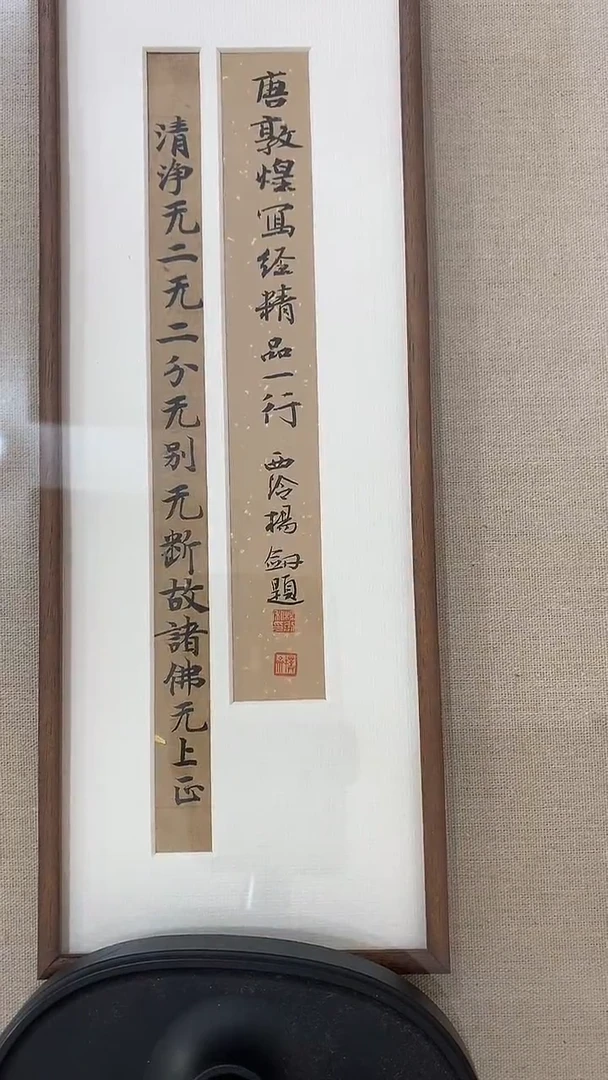 唐敦煌寫经精品一行 西泠楊劒題
清浄无二无二分无别无断故諸佛无上正